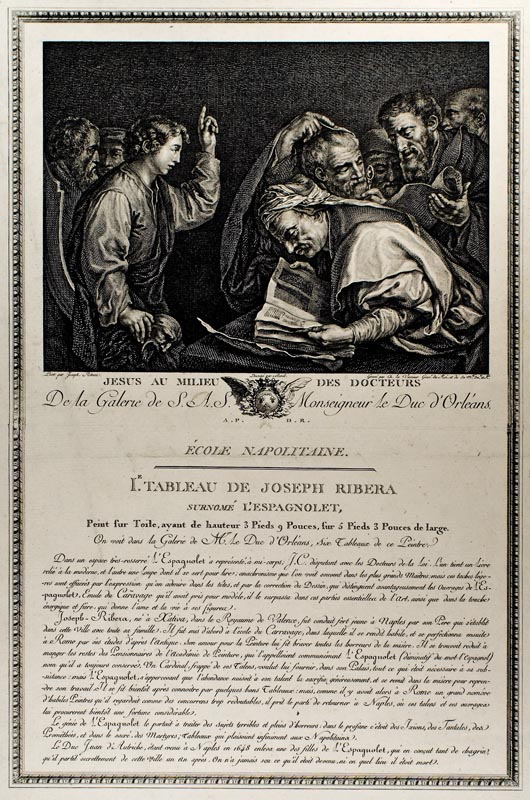 Peint par Joseph Ribera.
JESUS AU MILIEU DES DOCTEURS
De la Galerie de S. A. S. Monseigneur le Duc d'Orléans.
A. P. D. R.
ÉCOLE NAPOLITAINE.
Ier. TABLEAU DE JOSEPH RIBERA
SURNOMÉ L'ESPAGNOLET,
Peint sur Toile, ayant de hauteur 3 Pieds 9 Pouces, sur 5 Pieds 3 Pouces de large.
On voit dans la Galerie de M. Le Duc d'Orléans, Six Tableaux de ce Peintre.
Dans un espace très-resserré L'Espagnolet a représenté, à mi-corps, J.C. disputant avec les Docteurs de la Loi. L'un tient un Livre
relié à la moderne, et l'autre une loupe dont il se sert pour lire; anachronisme que l'on voit souvent dans les plus grands Maitres, mais ces taches lege-
res sont effacées par l'expression qu'on admire dans les têtes, et par la correction du Dessin, qui distinguent avantageusement les Ouvrages de l'Es-
pagnolet. Emule du Caravage qu'il avoit pris pour modèle, il le surpasse dans ces parties essentielles de l'Art, ainsi que dans la touche
énergique et fiere, qui donne l'ame et la vie à ses figures.
Joseph-Ribera, né à Xativa, dans le Royaume de Valence, fut conduit fort jeune à Naples par son Pere qui s'établit
dans cette Ville avec toute sa famille. Il fut mis d'abord à l'école du Carravage, dans laquelle il se rendit habile, et se perfectionna ensuite
à Rome par ses études d'après l'Antique. Son amour pour la Peinture lui fit braver toutes les horreurs de la misere. Il se trouvoit réduit à
manger les restes des Pensionnaires de l'Académie de Peinture, qui l'appelloient communément L'Espagnolet (diminutif du mot Espagnol)
nom qu'il a toujours conservé. Un Cardinal, frappé de ses Talens, voulut lui fournir, dans son Palais, tout ce qui étoit nécessaire à sa sub-
sistance: mais L'Espagnolet, s'appercevant que l'abondance nuisoit à son talent le sacrifia généreusement, et se remit dans la misere pour repren-
dre son travail. Il se fit bientôt après connoître par quelques bons Tableaux; mais, comme il y avoit alors à Rome un grand nombre
d'habiles Peintres qu'il regardoit comme des concurrens trop redoutables, il prit le parti de retourner à Naples, où ses talens et ses ouvrages
lui procurerent bientôt une fortune considérable.
Le génie de L'Espagnolet le portoit à traiter des sujets terribles et pleins d'horreurs: dans le profane c'étoit des Ixions, des Tantales, des
Prométhées, et dans le sacré, des Martyres, Tableaux qui plaisoient infiniment aux Napolitains.
Le Duc Juan d'Autriche, étant venu à Naples en 1648 enleva une des filles de L'Espagnolet, qui en conçut tant de chagrin,
qu'il partit secrettement de cette ville un an après. On n'a jamais sçu ce qu'il étoit devenu, ni en quel lieu il étoit mort.